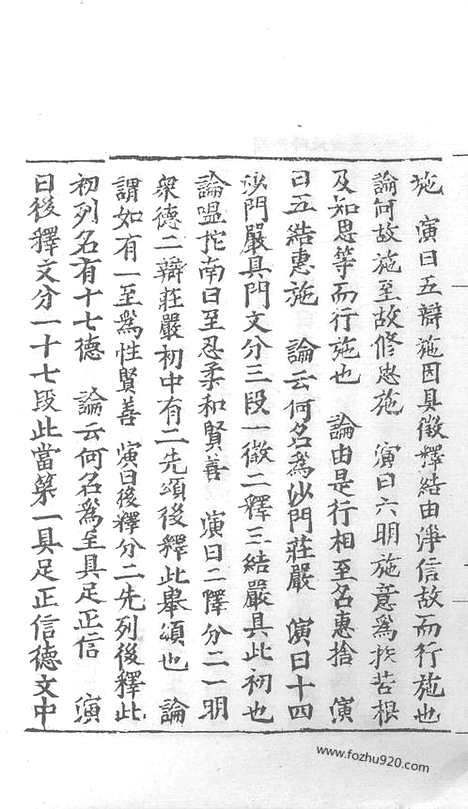 施　演曰五辯施因具徵釋結由淨信故而行施也
論何故施至故修惠施　演曰六明施意爲拔苦根
及知恩等而行施也　論由是行相至名惠捨　演
曰五結惠施　論云何名爲沙門莊嚴　演曰十四
沙門嚴具門文分三段一徵二釋三結嚴具此初也
論嗢拕南曰至忍柔和賢善　演曰二釋分二一明
衆德二辯莊嚴初中有二先頌後釋此舉頌也　論
謂如有一至爲性賢善　演曰後釋分二先列後釋此
初列名有十七德　論云何名爲至具足正信　演
曰後釋文分一十七段此當第一具足正信德文中
www.fozhu920.com